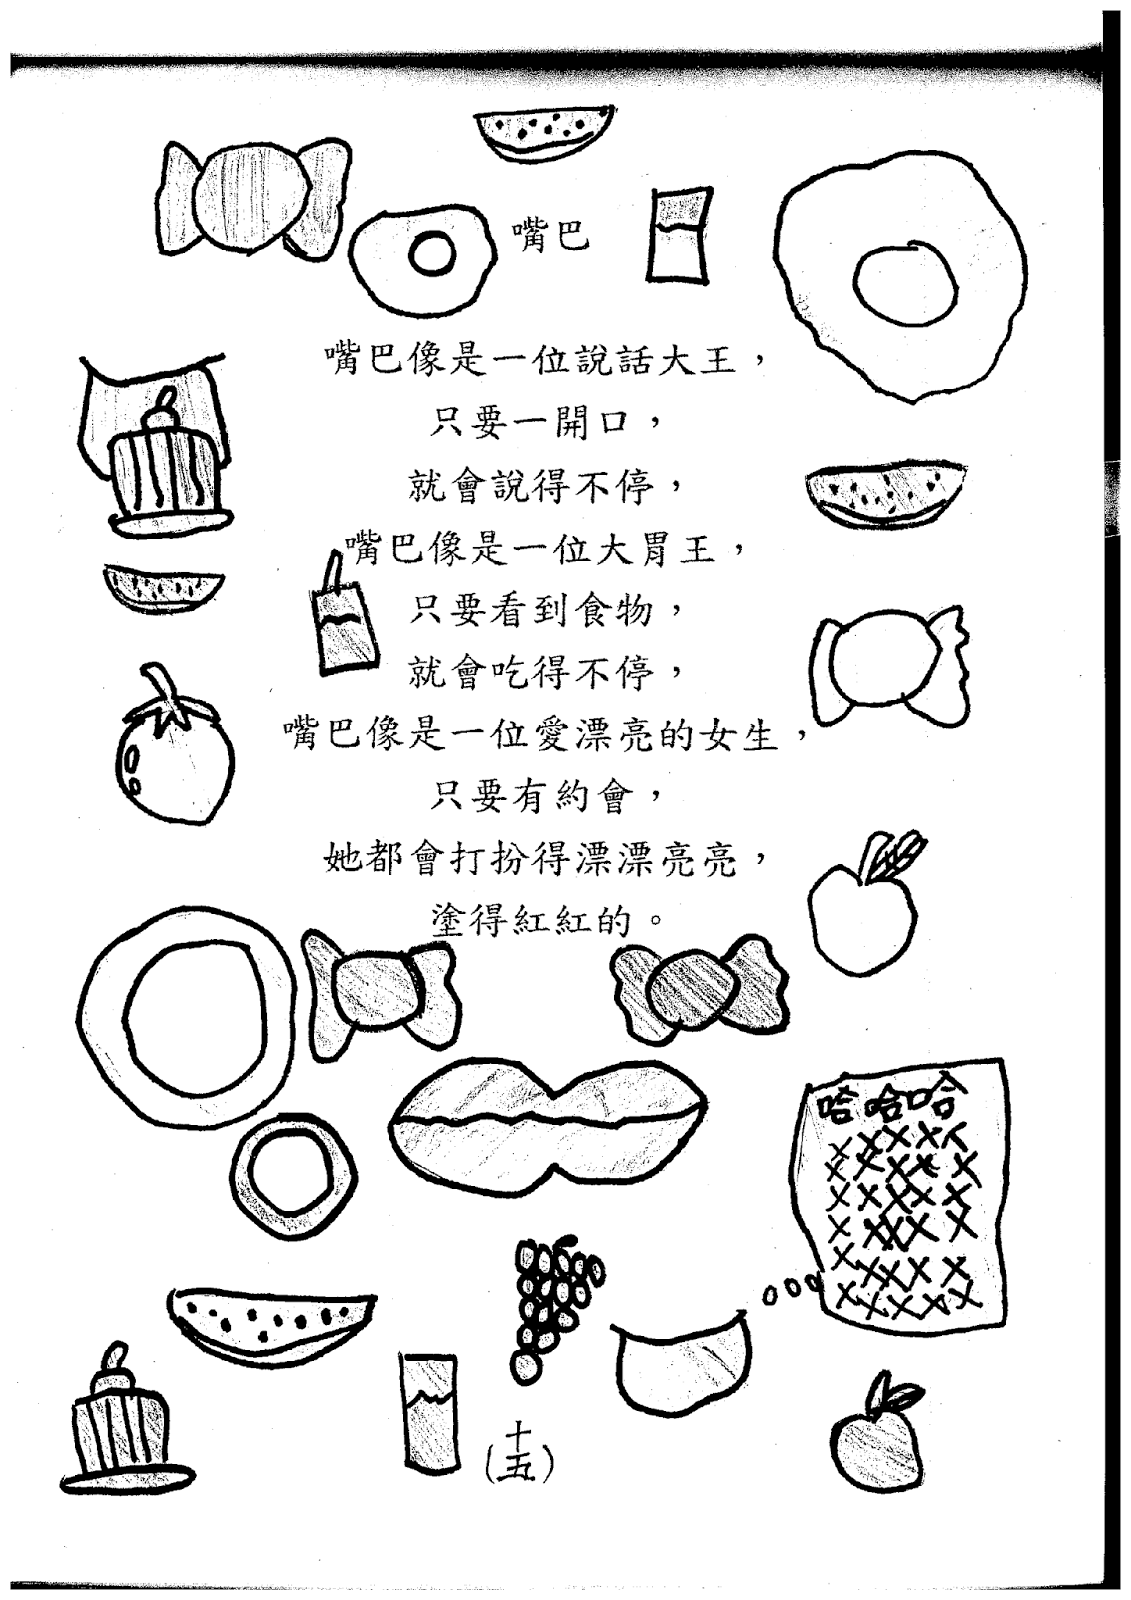 嘴巴
嘴巴像是一位說話大王，
只要一開口，
就會說得不停，
嘴巴像是一位大胃王，
只要看到食物，
就會吃得不停，
嘴巴像是一位愛漂亮的女生，
只要有約會，
她都會打扮得漂漂亮亮，
塗得紅紅的。
哈哈哈
XXXXX
XXXXX
XXXXX
XXXXX
XXXXX
XXXXX
(十五)